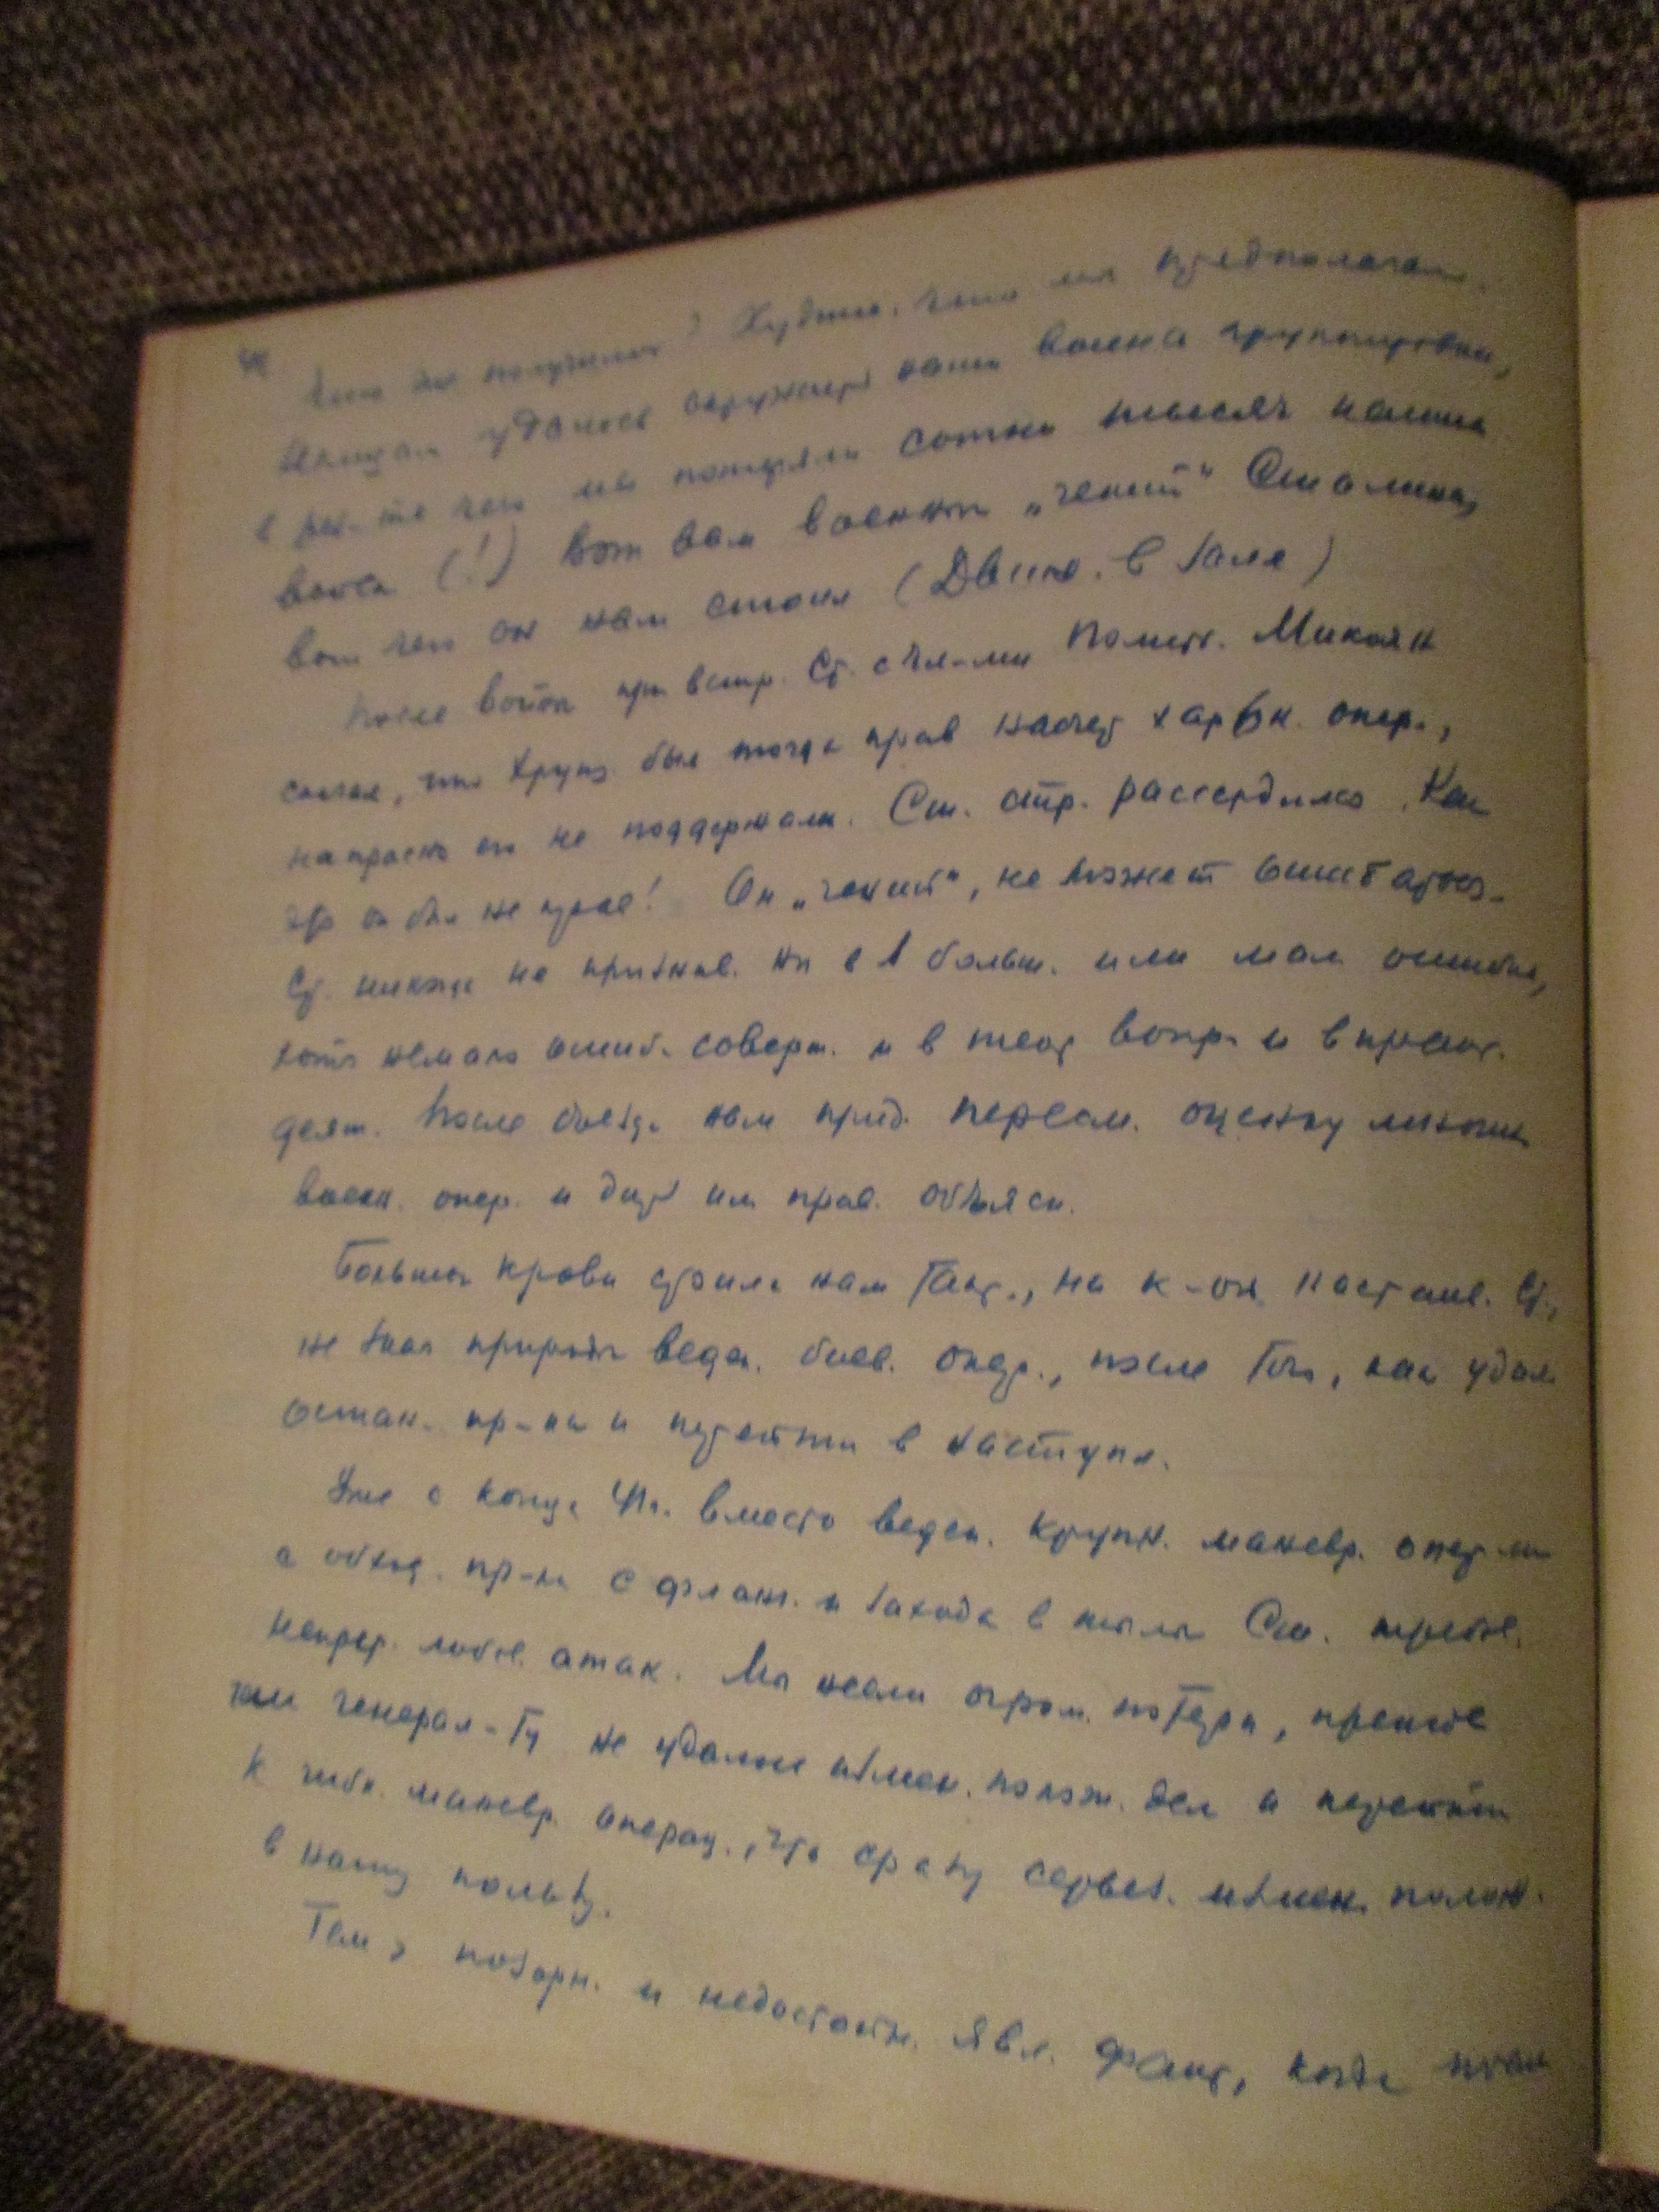 Что же получилось? Худшее, что мы предполагали.
Немцам удалось окружить наши воинск группировки,
в рез-те чего мы потеряли сотни тысяч наших
войск (!) Вот вам военный „гений" Сталина,
вот чего он нам стоил (Движ. в зале)
После войны при встр. Ст. с чл-ми Полит. Микоян
сказал, что Хрущ. был тогда прав насчет харьк. опер.,
напрасно его не поддержали. Ст. стр. рассердился. Как
это он был не прав! Он „гений", не может ошибаться.
Ст. никогда не признав. ни в 1 больш. или мал ошибке,
хотя немало ошиб. соверш. и в теор вопр. и в практ.
деят. После съезда нам прид. пересм. оценку многих
воен. опер. и дать им прав. объясн.
Большой крови стоила нам такт., на к-ой настаив. Ст.,
не зная природы веден. боев. опер., после того, как удал
остан. пр-ка и перейти в наступл.
Уже с конца 41 г. вместо веден. крупн. маневр. опер-ий
с обход. пр-ка с фланг. и захода в тылы Ст. требов.
непрер. лобов. атак. Мы несли огром. потери, прежде
чем генерал-ту не удалось измен. полож. дел и перейти
к гибк. маневр. операц., что сразу серьез. измен. полож.
в нашу пользу.
Тем > позорн. и недостойн. явл. факт, когда